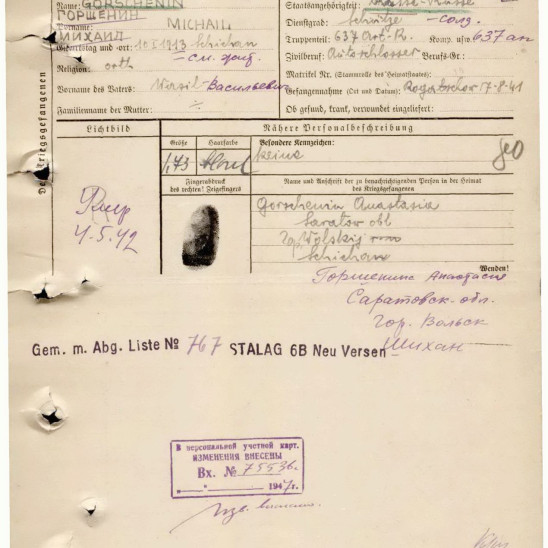 Name: GORSCHENIN
ГОРШЕНИН
Vorname: MICHAIL
МИХАИЛ
Geburtstag und -ort: 10.I.1913 Schichan
Religion: orth
Vorname des Vaters: Wasil- Васильевич
Familienname der Mutter: ÷
Staatsangehörigkeit: Russe
Dienstgrad: Schütze - солд.
Truppenteil: 637 Art. R. Komp. usw.: 637 ап
Zivilberuf: Autoschlosser Berufs-Gr.:
Matrikel Nr. (Stammrolle des Heimatstaates):
Gefangennahme (Ort und Datum): Rogatschow 17.8.41
Ob gesund, krank, verwundet eingeliefert:
Des Kriegsgefangenen
Lichtbild
Nähere Personalbeschreibung
Größe Haarfarbe Besondere Kennzeichen:
1,73 keine
Fingerabdruck
des rechten! Zeigefingers
Name und Anschrift der zu benachrichtigenden Person in der Heimat
des Kriegsgefangenen
Gorschenin Anastasia
Saratow obl
Wolskij
Schichan
Умер
4.5.42
Wenden!
Горшенина Анастасия
Саратовск. обл.
гор. Вольск
Шихан
Gem. m. Abg. Liste № 767 STALAG 6B Neu Versen
В персональной учетной карт.
ИЗМЕНЕНИЯ ВНЕСЕНЫ
Вх. № 75536.
1947г.